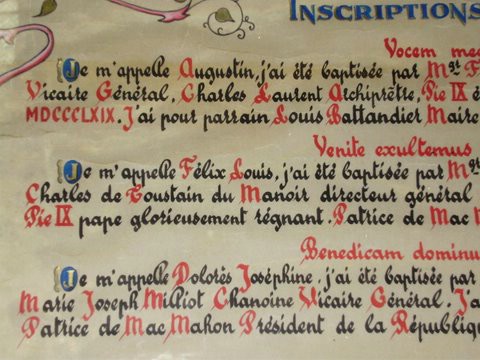 INSCRIPTIONS
Vocem
Je m'appelle Augustin, j'ai été baptisée par Mgr F
Vicaire Général, Charles Laurent Archiprêtre, Pie IX é
MDCCCLXIX. J'ai pour parrain Louis Battandier Maire
Venite exultemus
Je m'appelle Félix Louis, j'ai été baptisée par Mgr
Charles de Toustain du Manoir directeur général
Pie IX pape glorieusement régnant. Patrice de Mac M
Benedicam dominu
Je m'appelle Dolorès Joséphine, j'ai été baptisée par
Marie Joseph Milliot Chanoine Vicaire Général. J'a
Patrice de Mac Mahon Président de la Républiqu